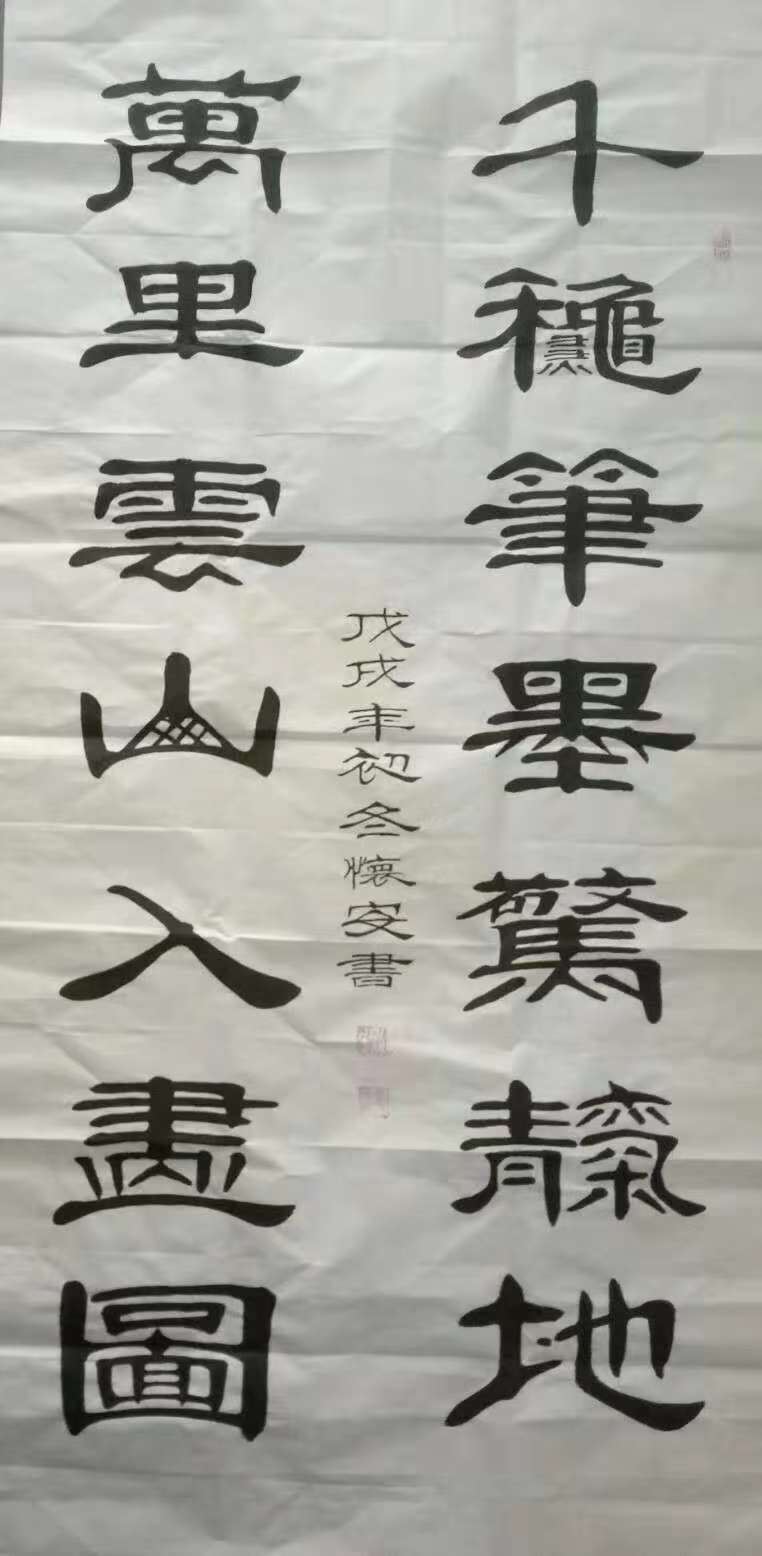 千龝筆墨驚靝地
萬里雲山入畫圖
戊戌年初冬懷安書